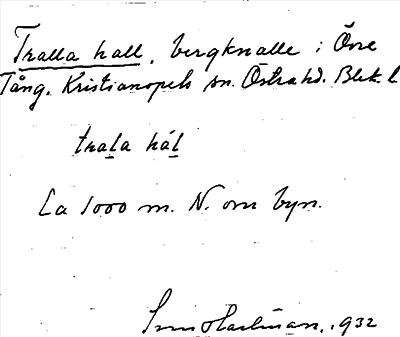 Tralla hall, bergknalle i Övre
Tång. Kristianopels sn. Östra hd. Blek. l
trala hál
Ca 1000 m. N. om byn.
1932